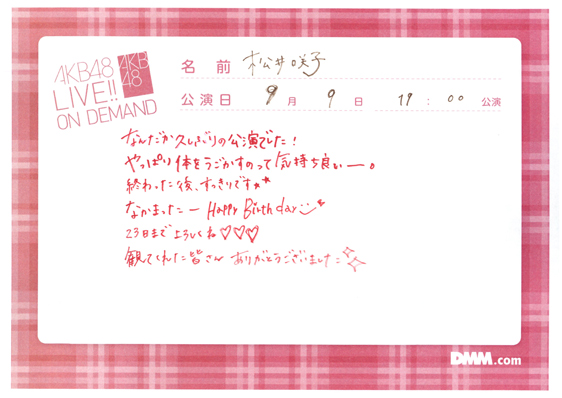 AKB48
LIVE!!
ON DEMAND
AKB
48
名 前 松井咲子
公演日 9月 9日 19:00 公演
なんだか久しぶりの公演でした！
やっぱり体をうごかすのって気持ち良いー。
終わった後、すっきりです
なかまったー Happy Birthday
23日まで よろしくね♡♡♡
観てくれた皆さん ありがとうございました
DMM.com